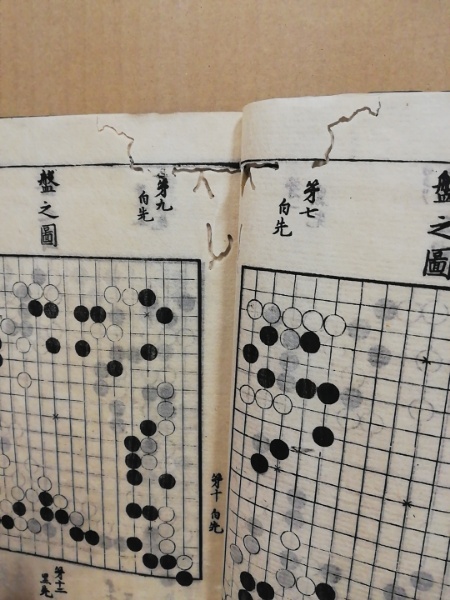 盤之圖
第七
白先
盤之圖
第九
白先
第十 白先
第十三
黒先